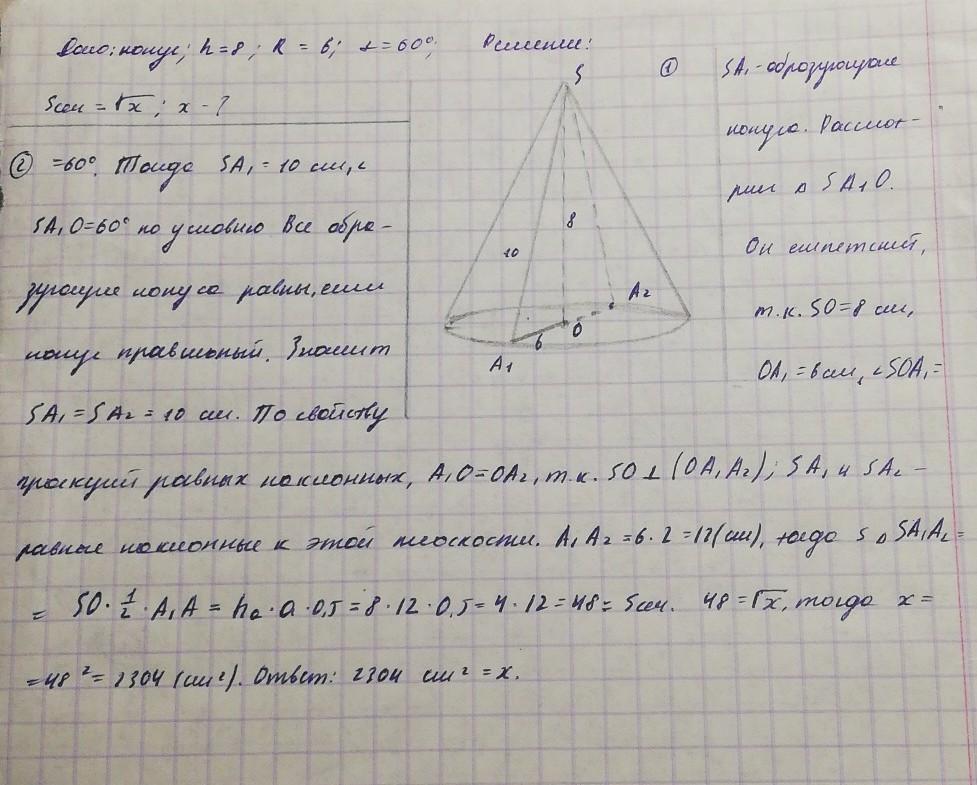 Дано: конус; h=8; R=6; α=60°;
Sсеч = √x; x - ?
Решение:
① SA₁ - образующие
конуса. Рассмот-
рим Δ SA₁O.
Он египетский,
т.к. SO=8 см,
OA₁=6 см, ∠SOA₁=
② =60°. Тогда SA₁=10 см, ∠
SA₁O=60° по условию Все обра-
зующие конуса равны, если
конус правильный. Значит
SA₁=SA₂=10 см. По свойству
проекций равных наклонных, A₁O=OA₂, т.к. SO⊥(OA₁A₂); SA₁ и SA₂ -
равные наклонные к этой плоскости. A₁A₂=6·2=12(см), тогда S Δ SA₁A₂=
= SO·1/2·A₁A = hₐ·a·0,5=8·12·0,5=4·12=48=Sсеч. 48=√x, тогда x=
=48²=2304 (см²). Ответ: 2304 см²=x.
S
8
10
A₂
O
6
A₁